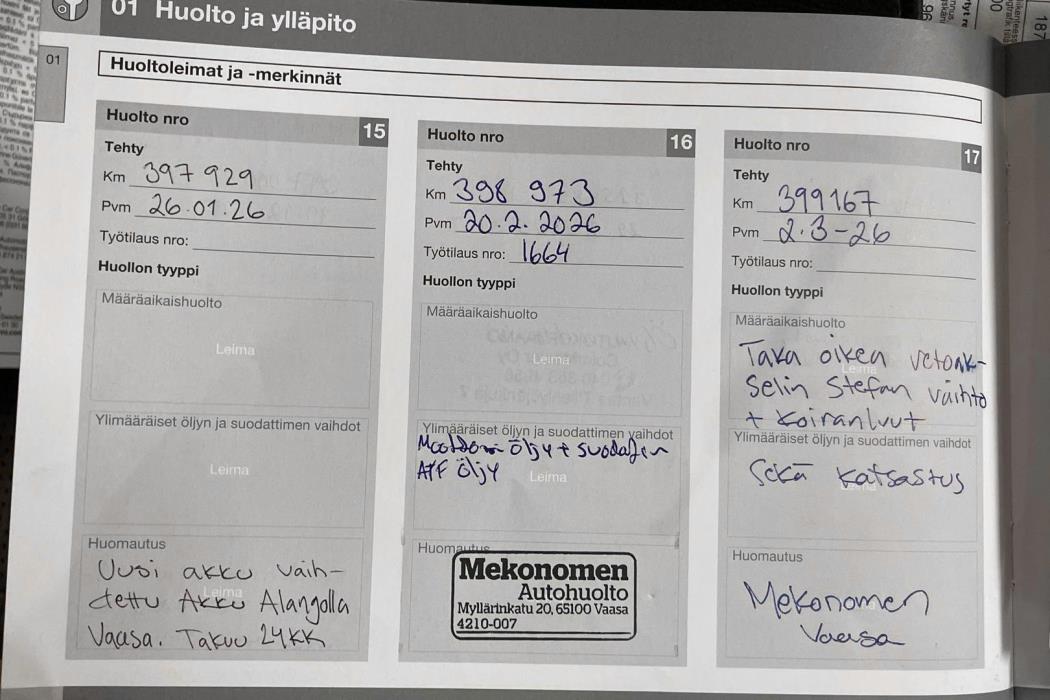 01 Huolto ja ylläpito
01
Huoltoleimat ja -merkinnät
Huolto nro 15
Tehty
Km 397 929
Pvm 26.01.26
Työtilaus nro:
Huollon tyyppi
Määräaikaishuolto
Leima
Ylimääräiset öljyn ja suodattimen vaihdot
Leima
Huomautus
Leima
Uusi akku vaih-
dettu Akku Alangolla
Vaasa. Takuu 24KK
Huolto nro 16
Tehty
Km 398 973
Pvm 20.2.2026
Työtilaus nro: 1664
Huollon tyyppi
Määräaikaishuolto
Leima
Ylimääräiset öljyn ja suodattimen vaihdot
öljy + suodatin
ATF öljy
Leima
Huomautus
Mekonomen
Autohuolto
Myllärinkatu 20, 65100 Vaasa
4210-007
Huolto nro 17
Tehty
Km 399167
Pvm 2.3-26
Työtilaus nro:
Huollon tyyppi
Määräaikaishuolto
Taka oikea vetoak-
Leima
Selin Stefan vaihto
+ koiranluut
Ylimääräiset öljyn ja suodattimen vaihdot
Sekä katsastus
Huomautus
Mekonomen
Vaasa